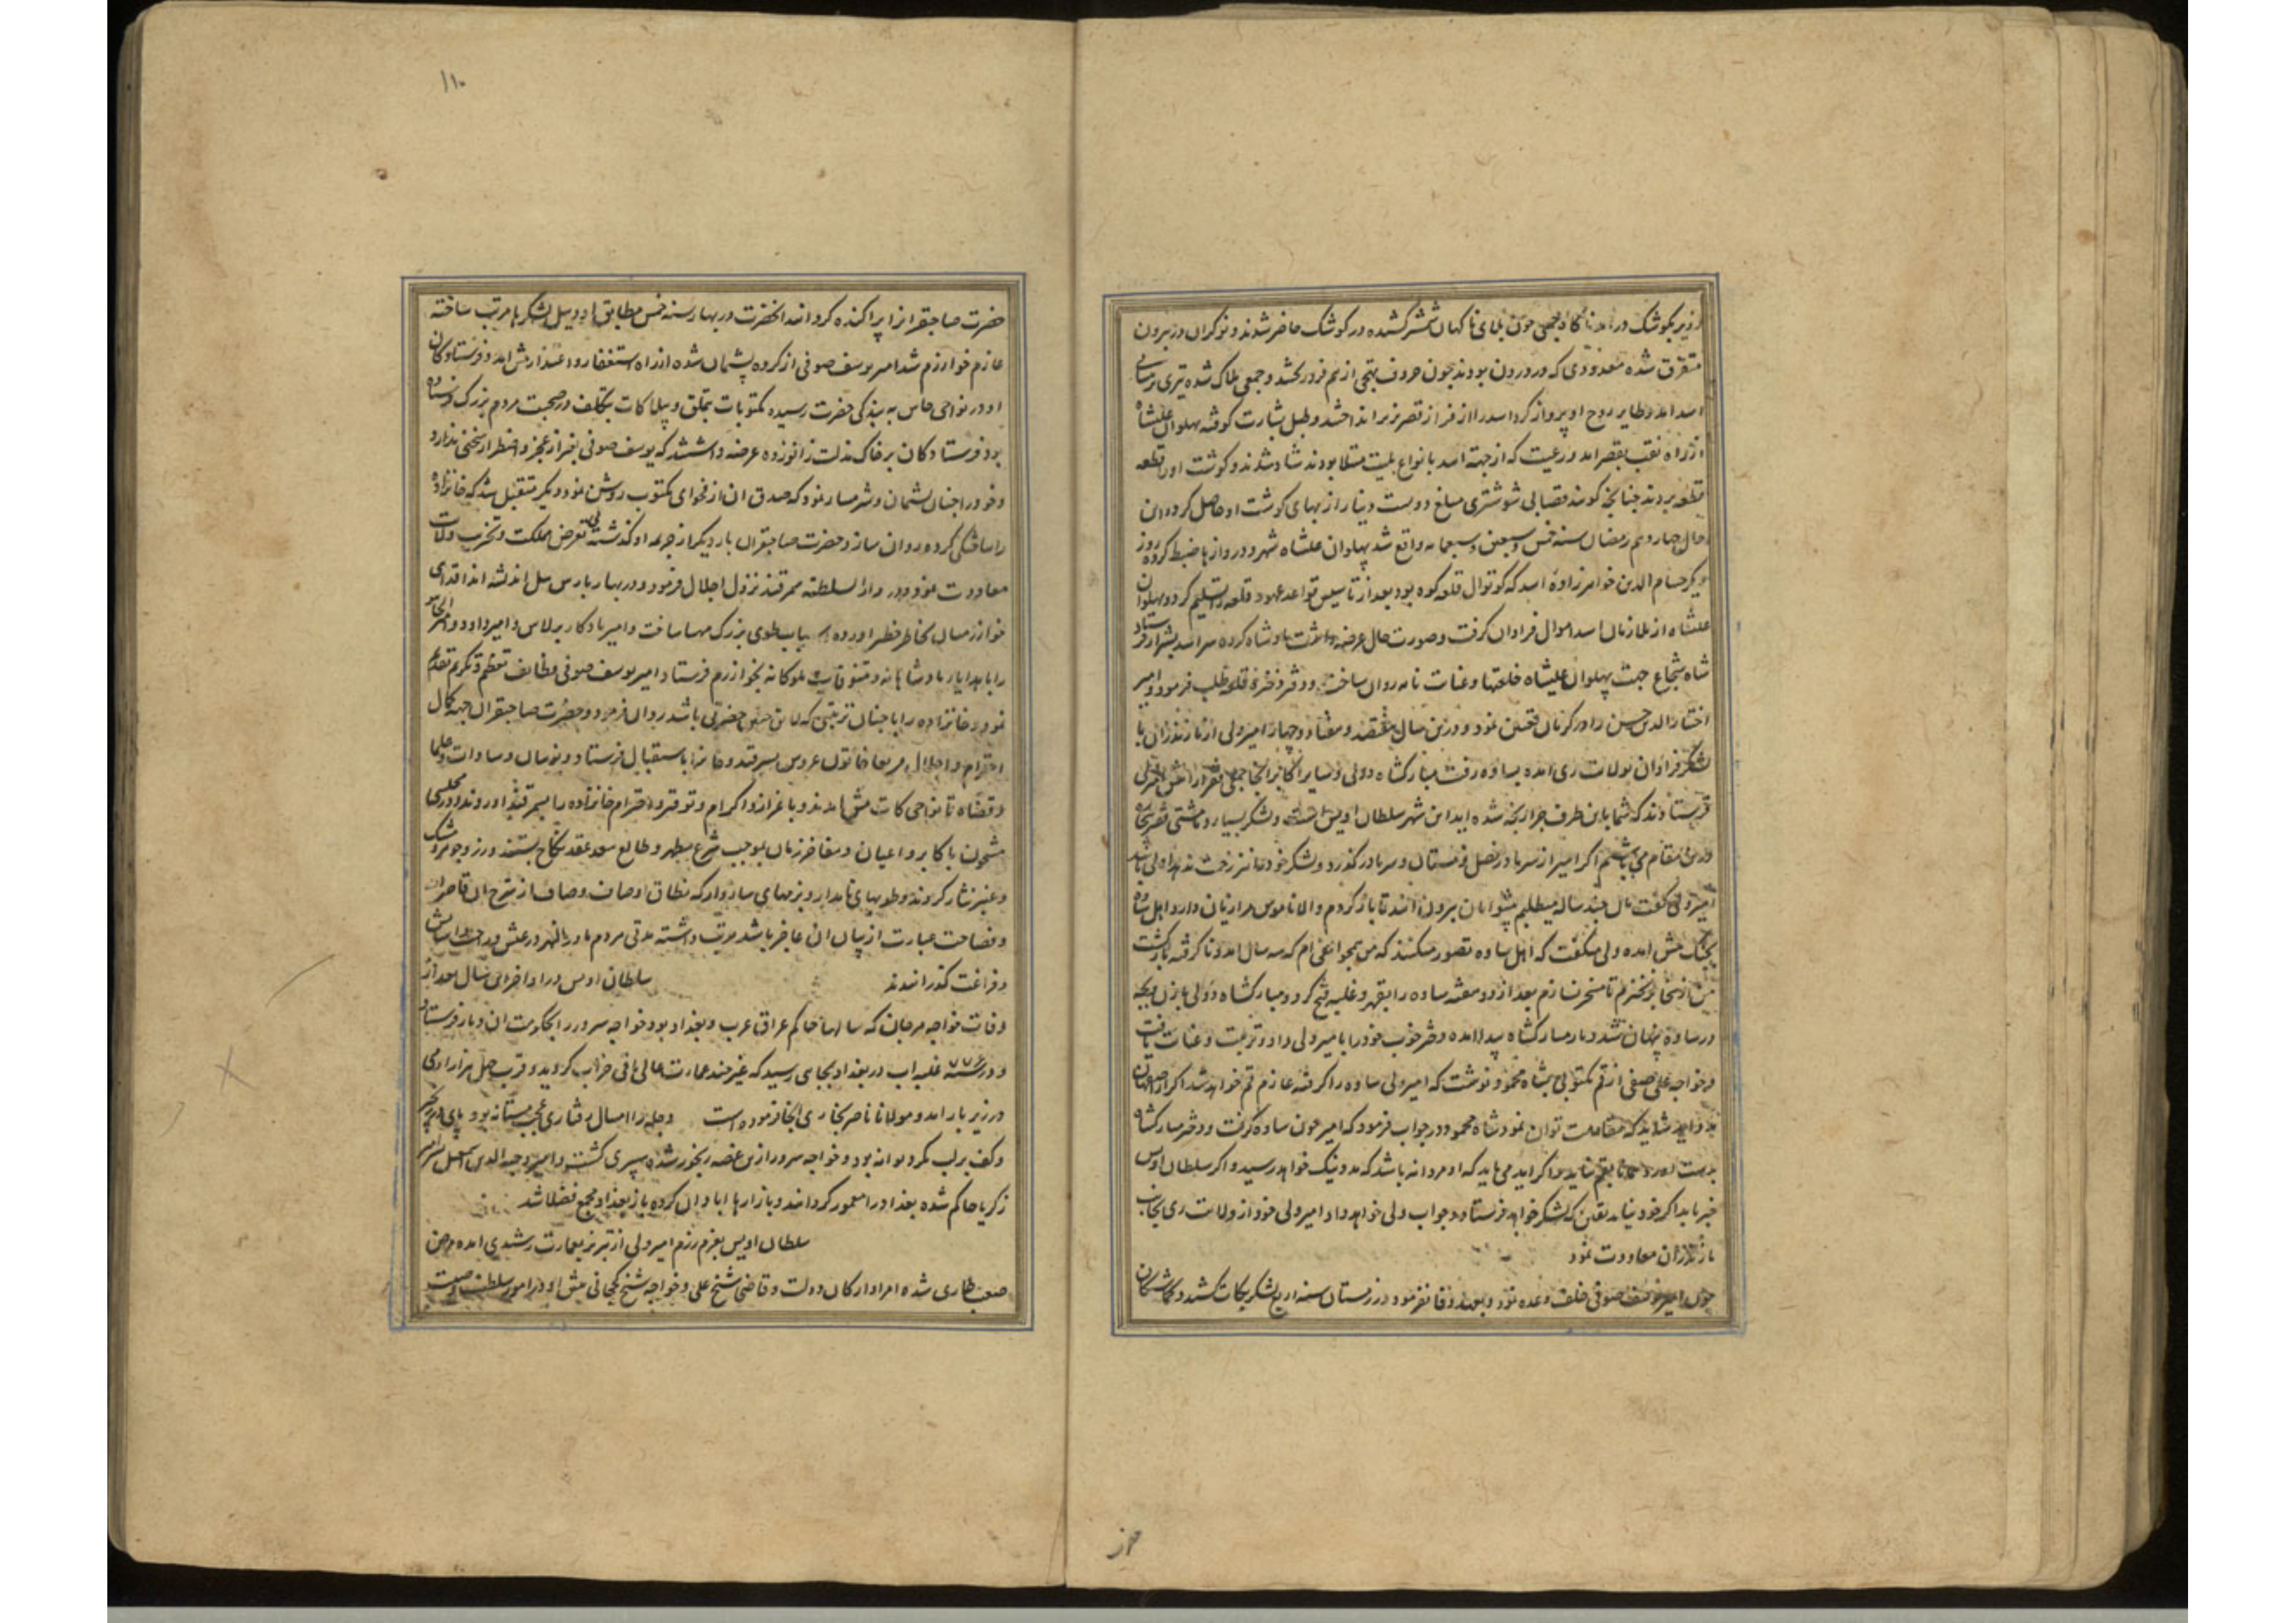 از زیر بکوشک درامد ناکاه جمعی چون بلای ناکهان شمشیر کشیده در کوشک حاضر شدند و نوکران در بیرون
متفرق شده معدودی که در درون بودند چون حروف تهجی از هم فرو ریختند و جمعی هلاک شده تیری بر
اسد امد و طایر روح او پرواز کرد اسد را از فراز قصر بزیر انداختند و طبل بشارت کوفته پهلوان علیشاه
از راه نقب بقصر امد و رعیت که از جهة اسد بانواع بلیت مبتلا بودند شاد شدند و کوشت او را قطعه
قطعه بردند چنانچه کویند قصابی شوشتری مبلغ دویست دینار از بهای کوشت او حاصل کرد و این
حال چهاردهم رمضان سنه خمس و سبعین و سبعمایه واقع شد پهلوان علیشاه شهر و دروازها ضبط کرده روز
دیکر حسام الدین خواهرزاده اسد که کوتوال قلعه کوه بود بعد از تاسیس قواعد عهود قلعه را تسلیم کرد و پهلوان
علیشاه از ملازمان اسد اموال فراوان کرفت و صورت حال عرضه داشت پادشاه کرده سر اسد بشیراز فرستاد
شاه شجاع جهت پهلوان علیشاه خلعتها و عنایت نامه روان ساخت و دفتر ذخیره قلعه طلب فرمود و امیر
اختیار الدین حسن را در کرمان تعیین نمود و درین سال هفتصد و هفتاد و چهار امیر ولی از مازندران با
لشکر فراوان بولایت ری امده بساوه رفت مبارکشاه دولی و سایر اکابر انجا جمعی فقرا را پیش امیر ولی
فرستادند که شما باین طرف چرا رنجه شده اید این شهر سلطان اویس است و لشکر بسیار و ما مشتی فقیر بیچاره
درین مقام می باشیم اکر امیر از سر ما در فصل زمستان و سرما در کذرد و لشکر خود را نیز زحمت ندهد اولی باشد
امیر ولی کفت مال چند ساله میطلبم پیشوایان بیرون ایند تا باز کردم و الا ناموس مرا زیان دارد و اهل ساوه
بجنک پیش امده ولی میکفت که اهل ساوه تصور میکنند که من همچو ام که سه سال امد و ناکرفته باز کشت
من از اینجا برنخیزم تا مسخر نسازم بعد از دو هفته ساوه را بقهر و غلبه فتح کرد و مبارکشاه دولی با زن و بچه
در ساوه پنهان شد و مادر مبارکشاه پیدا امده دختر خوب خود را بامیر ولی داد و تربیت و عنایت یافت
و خواجه علی صفی از قم مکتوبی بشاه محمود نوشت که امیر ولی ساوه را کرفته عازم قم خواهد شد اکر از اصفهان
مدد اید شاید که مقاومت توان نمود شاه محمود در جواب فرمود که امیر چون ساوه کرفت و دختر مبارکشاه
بدست اورد همانا بقم نیاید و اکر اید می باید که او مردانه باشد که مدد نیک خواهد رسید و اکر سلطان اویس
خبر یابد اکر خود نیاید یقین که لشکر خواهد فرستاد و جواب ولی خواهد داد امیر ولی خود از ولایت ری بجانب
مازندران معاودت نمود
چون امیر یوسف صوفی خلف وعده نمود و بعهد وفا نفرمود در زمستان سنه اربع لشکر بکات کشید و کماشتکان
حضرت صاحبقرانرا پراکنده کردانید انحضرت در بهار سنه خمس مطابق اودییل لشکرها مرتب ساخته
عازم خوارزم شد امیر یوسف صوفی از کرده پشیمان شده از راه استغفار و اعتذار پیش امد و فرستادکان
او در نواحی خاس به بندکی حضرت رسیده مکتوبات بتملق و بیلاکات بتکلف در صحبت مردم بزرک فرستاده
بود فرستادکان بر خاک مذلت زانو زده عرضه داشتند که یوسف صوفی بغیر از عجز و اضطرار سخنی ندارد
و خود را چنان پشیمان و شرمسار نمود که صدق ان از فحوای مکتوب روشن نمود و دیکر متقبل شد که خانزاده
را ساختکی کرده روان سازد حضرت صاحبقران بار دیکر از جریمه او کذشته بی تعرض مملکت و تخریب ولایات
معاودت نمود و در دار السلطنه سمرقند نزول اجلال فرمود و در بهار بارس ییل اندیشه
خوارزمیان بخاطر خطیر اورده اسباب طوی بزرک مهیا ساخت و امیر یادکار برلاس و امیر داود و امیر الجایتو
را با هدایای پادشاهانه و تنوقات ملوکانه بخوارزم فرستاد امیر یوسف صوفی وظایف تعظیم و تکریم تقدیم
نمود و خانزاده را با چنان تزیینی که لایق چنین حضرتی باشد روان فرمود و حضرت صاحبقران جهة کمال
احترام و اجلال مربعا خاتون عروس سمرقند و خانرا باستقبال فرستاد و نوینان و سادات و علما
و قضاه تا نواحی کات پیش امدند و باعزاز و اکرام و توقیر و احترام خانزاده را بسمرقند اوردند و در مجلسی
مشحون باکابر و اعیان و مفاخر زمان بموجب شرع مطهر و طالع سعد عقد نکاح بستند و زر و جوهر و مشک
و عنبر نثار کردند و طویهای نامدار و بزمهای سازوار که نطاق اوصاف وصاف از شرح ان قاصر
و فصاحت عبارت از بیان ان عاجز باشد مرتب داشته مدتی مردم ماوراءالنهر در عیش و راحت و اسایش
و فراغت کذرانیدند سلطان اویس در اواخر این سال بعد از
وفات خواجه مرجان که سالها حاکم عراق عرب و بغداد بود خواجه سرور را بحکومت ان دیار فرستاد
و در سنه ۷۷۶ غلبه اب در بغداد بجایی رسید که غیر چند عمارت عالی باقی خراب کردید و قرب چهل هزار ادمی
در زیر بار امد و مولانا ناصر بخاری انجا فرموده است دجله را امسال رفتاری عجب مستانه بود پای در زنجیر
و کف بر لب مکر دیوانه بود و خواجه سرور ازین غصه رنجور شده سپری کشت و امیر وجیه الدین اسمعیل پسر امیر
زکریا حاکم شده بغداد را معمور کردانید و بازارها ابادان کرده باز بغداد مجمع فضلا شد
سلطان اویس بعزم رزم امیر ولی از تبریز بعمارت رشیدی امده مرض
صعب طاری شده امرا و ارکان دولت و قاضی شیخ علی و خواجه شیخ کججانی پیش او در امور سلطنت وصیت